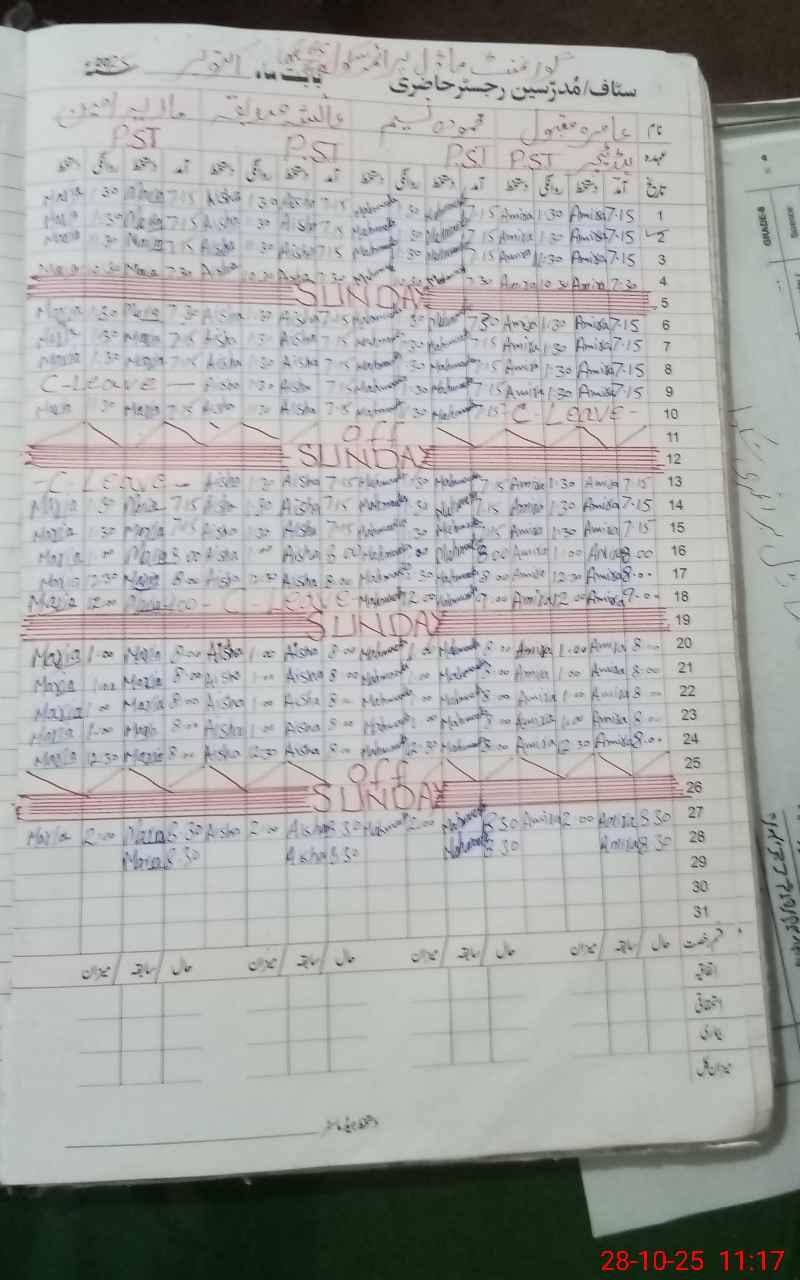 گورنمنٹ ماڈل پرائمری سکول
سٹاف/مُدرّسین رجسٹر حاضری بابت ماہ اکتوبر 2025ء
نام عامرہ مقبول محمودہ نسیم عائشہ صدیقہ ماریہ امین
عہدہ PST PST P.ST P.ST
تاریخ آمد دستخط روانگی دستخط آمد دستخط روانگی دستخط آمد دستخط روانگی دستخط آمد دستخط روانگی دستخط
Maria 1:30 Maria 7:15 Aisha 1:30 Aisha 7:15 Mahmooda 1:30 Mahmooda 7:15 Amira 1:30 Amira 7:15 1
Maria 1:30 Maria 7:15 Aisha 1:30 Aisha 7:15 Mahmooda 1:30 Mahmooda 7:15 Amira 1:30 Amira 7:15 2
Maria 1:30 Maria 7:15 Aisha 1:30 Aisha 7:15 Mahmooda 1:30 Mahmooda 7:15 Amira 1:30 Amira 7:15 3
Maria 10:30 Maria 7:30 Aisha 10:30 Aisha 7:30 Mahmooda 10:30 Mahmooda 7:30 Amira 10:30 Amira 7:30 4
SUNDAY 5
Maria 1:30 Maria 7:30 Aisha 1:30 Aisha 7:15 Mahmooda 1:30 Mahmooda 7:30 Amira 1:30 Amira 7:15 6
Maria 1:30 Maria 7:15 Aisha 1:30 Aisha 7:15 Mahmooda 1:30 Mahmooda 7:15 Amira 1:30 Amira 7:15 7
Maria 1:30 Maria 7:15 Aisha 1:30 Aisha 7:15 Mahmooda 1:30 Mahmooda 7:15 Amira 1:30 Amira 7:15 8
C-Leave — Aisha 1:30 Aisha 7:15 Mahmooda 1:30 Mahmooda 7:15 Amira 1:30 Amira 7:15 9
Maria 1:30 Maria 7:15 Aisha 1:30 Aisha 7:15 Mahmooda 1:30 Mahmooda 7:15 -C-Leave- 10
Off 11
SUNDAY 12
-C-Leave- Aisha 1:30 Aisha 7:15 Mahmooda 1:30 Mahmooda 7:15 Amira 1:30 Amira 7:15 13
Maria 1:30 Maria 7:15 Aisha 1:30 Aisha 7:15 Mahmooda 1:30 Mahmooda 7:15 Amira 1:30 Amira 7:15 14
Maria 1:30 Maria 7:15 Aisha 1:30 Aisha 7:15 Mahmooda 1:30 Mahmooda 7:15 Amira 1:30 Amira 7:15 15
Maria 1:00 Maria 8:00 Aisha 1:00 Aisha 8:00 Mahmooda 1:00 Mahmooda 8:00 Amira 1:00 Amira 8:00 16
Maria 12:30 Maria 8:00 Aisha 12:30 Aisha 8:00 Mahmooda 12:30 Mahmooda 8:00 Amira 12:30 Amira 8:00 17
Maria 12:00 Maria 9:00 -C-Leave Mahmooda 12:00 Mahmooda 9:00 Amira 12:00 Amira 9:00 18
SUNDAY 19
Maria 1:00 Maria 8:00 Aisha 1:00 Aisha 8:00 Mahmooda 1:00 Mahmooda 8:00 Amira 1:00 Amira 8:00 20
Maria 1:00 Maria 8:00 Aisha 1:00 Aisha 8:00 Mahmooda 1:00 Mahmooda 8:00 Amira 1:00 Amira 8:00 21
Maria 1:00 Maria 8:00 Aisha 1:00 Aisha 8:00 Mahmooda 1:00 Mahmooda 8:00 Amira 1:00 Amira 8:00 22
Maria 1:00 Maria 8:00 Aisha 1:00 Aisha 8:00 Mahmooda 1:00 Mahmooda 8:00 Amira 1:00 Amira 8:00 23
Maria 12:30 Maria 8:00 Aisha 12:30 Aisha 8:00 Mahmooda 12:30 Mahmooda 8:00 Amira 12:30 Amira 8:00 24
Off 25
SUNDAY 26
Maria 2:00 Maria 8:30 Aisha 2:00 Aisha 8:30 Mahmooda 2:00 Mahmooda 8:30 Amira 2:00 Amira 8:30 27
Maria 8:30 Aisha 8:30 Mahmooda 8:30 Amira 8:30 28
29
30
31
حال سابقہ میزان حال سابقہ میزان حال سابقہ میزان حال سابقہ میزان
اتفاقیہ
بیماری
میزان کل
GRADE-8
Science
28-10-25 11:17